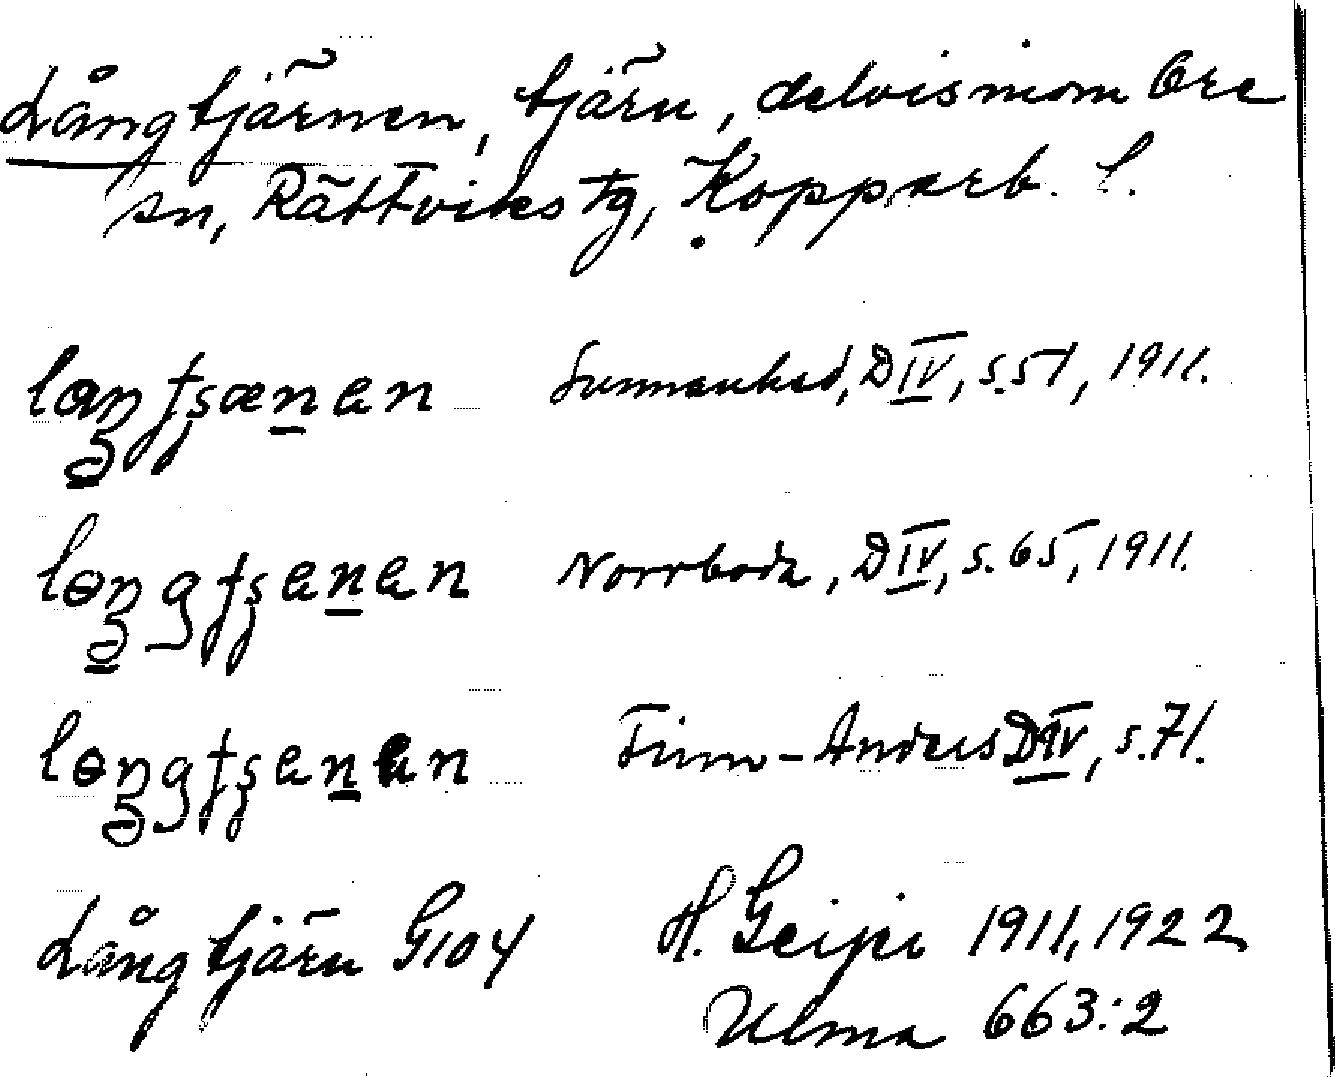 Långtjärnen, tjärn, delvis inom Ore
sn, Rättviks tg, Kopparb. l.
laŋtʂænen Sunnanhed, D IV, s. 51, 1911.
lɵŋgtʂenen Norrboda, D IV, s. 65, 1911.
lɵŋgtʂenen Finn-Anders D IV, s. 71.
Långtjärn G104 H. Geijer 1911, 1922
Ulma 663:2